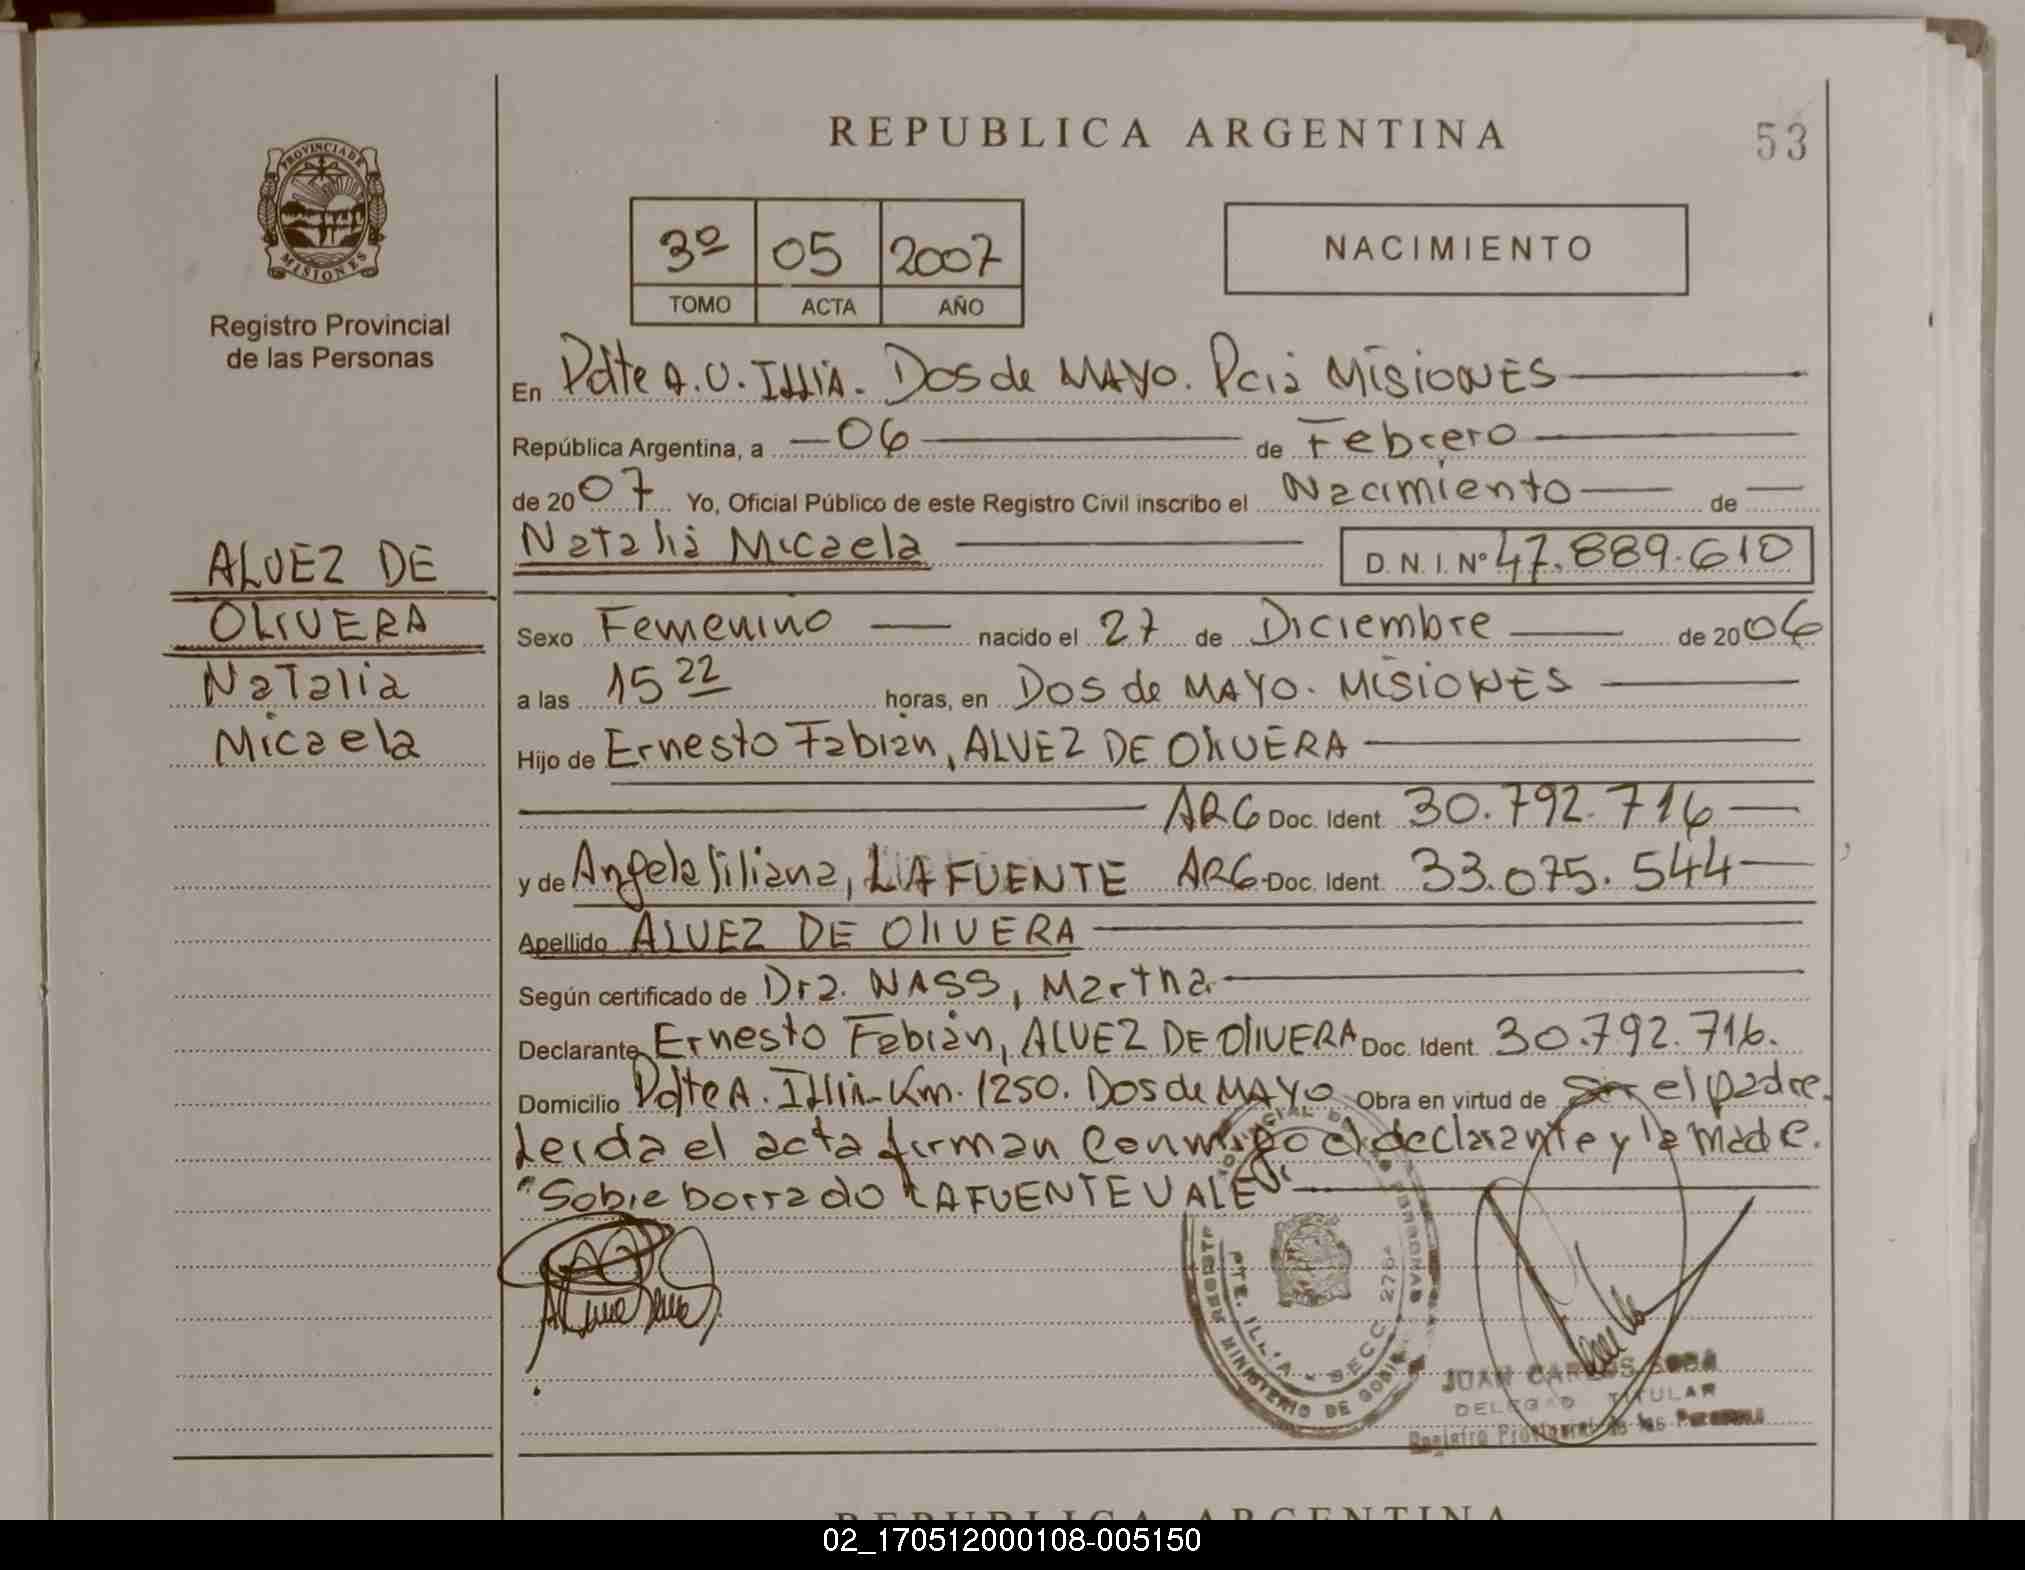 REPUBLICA ARGENTINA
53
PROVINCIA DE MISIONES
Registro Provincial
de las Personas
3º 05 2007
TOMO ACTA AÑO
NACIMIENTO
En Pdte A.U. Illia. Dos de MAYO. Pcia MISIONES
República Argentina, a 06 de Febrero
de 2007 Yo, Oficial Público de este Registro Civil inscribo el Nacimiento de
Natalia Micaela
D.N.I. Nº 47.889.610
ALVEZ DE
OLIVERA
Natalia
Micaela
Sexo Femenino nacido el 27 de Diciembre de 2006
a las 15 22 horas, en Dos de MAYO. MISIONES
Hijo de Ernesto Fabian, ALVEZ DE OliVERA
ARG Doc. Ident. 30.792.716
y de Angela liliana, LAFUENTE ARG Doc. Ident. 33.075.544
Apellido ALVEZ DE OliVERA
Según certificado de Dra. NASS, Martha
Declarante Ernesto Fabián, ALVEZ DE OliVERA Doc. Ident. 30.792.716.
Domicilio Pdte A. Illia - Km. 1250. Dos de MAYO Obra en virtud de ser el padre.
Leida el acta firman conmigo el declarante y la madre.
"Sobre borrado LAFUENTE VALE"
REGISTRO PROVINCIAL DE LAS PERSONAS
PTE. ILLIA - SECC. 276ª
MINISTERIO DE GOBIE
JUAN CARLOS
DELEGADO TITULAR
Registro Provincial de las Personas
REPUBLICA ARGENTINA
02_170512000108-005150